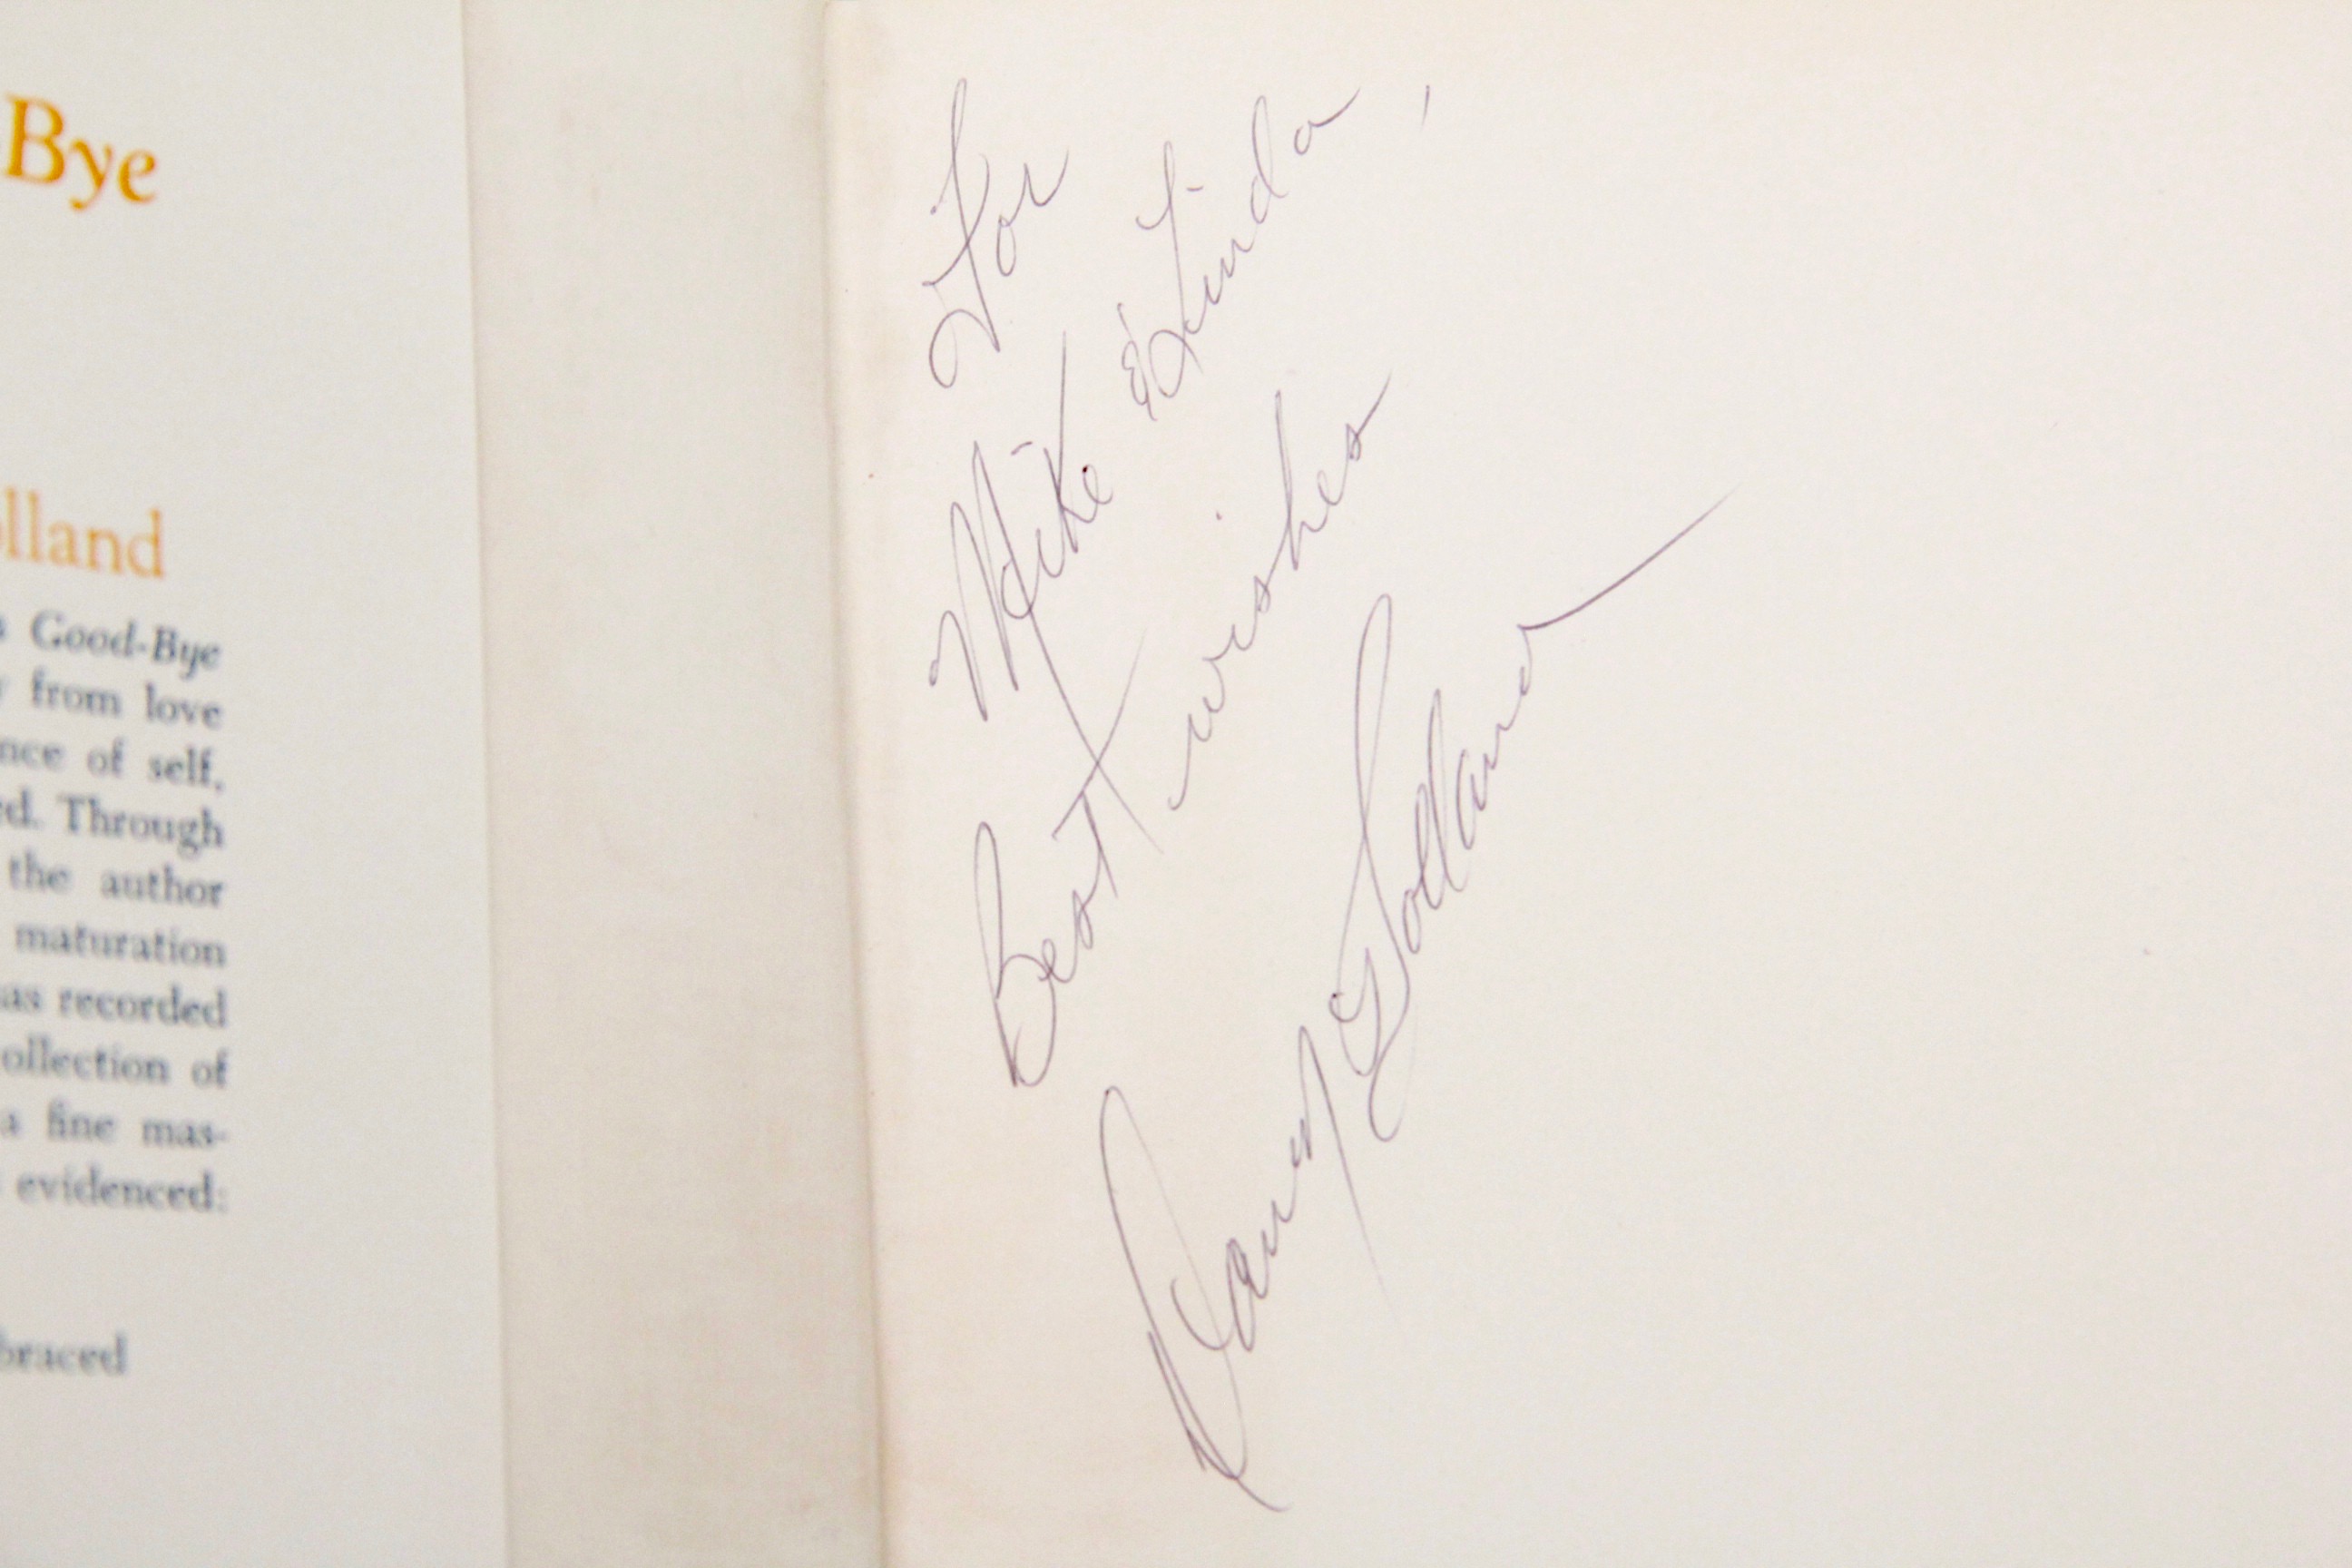 Bye
lland
Good-Bye
from love
nce of self,
d. Through
the author
maturation
as recorded
ollection of
a fine mas-
evidenced:
braced
For
Mike & Linda,
Best wishes
Danny Holland